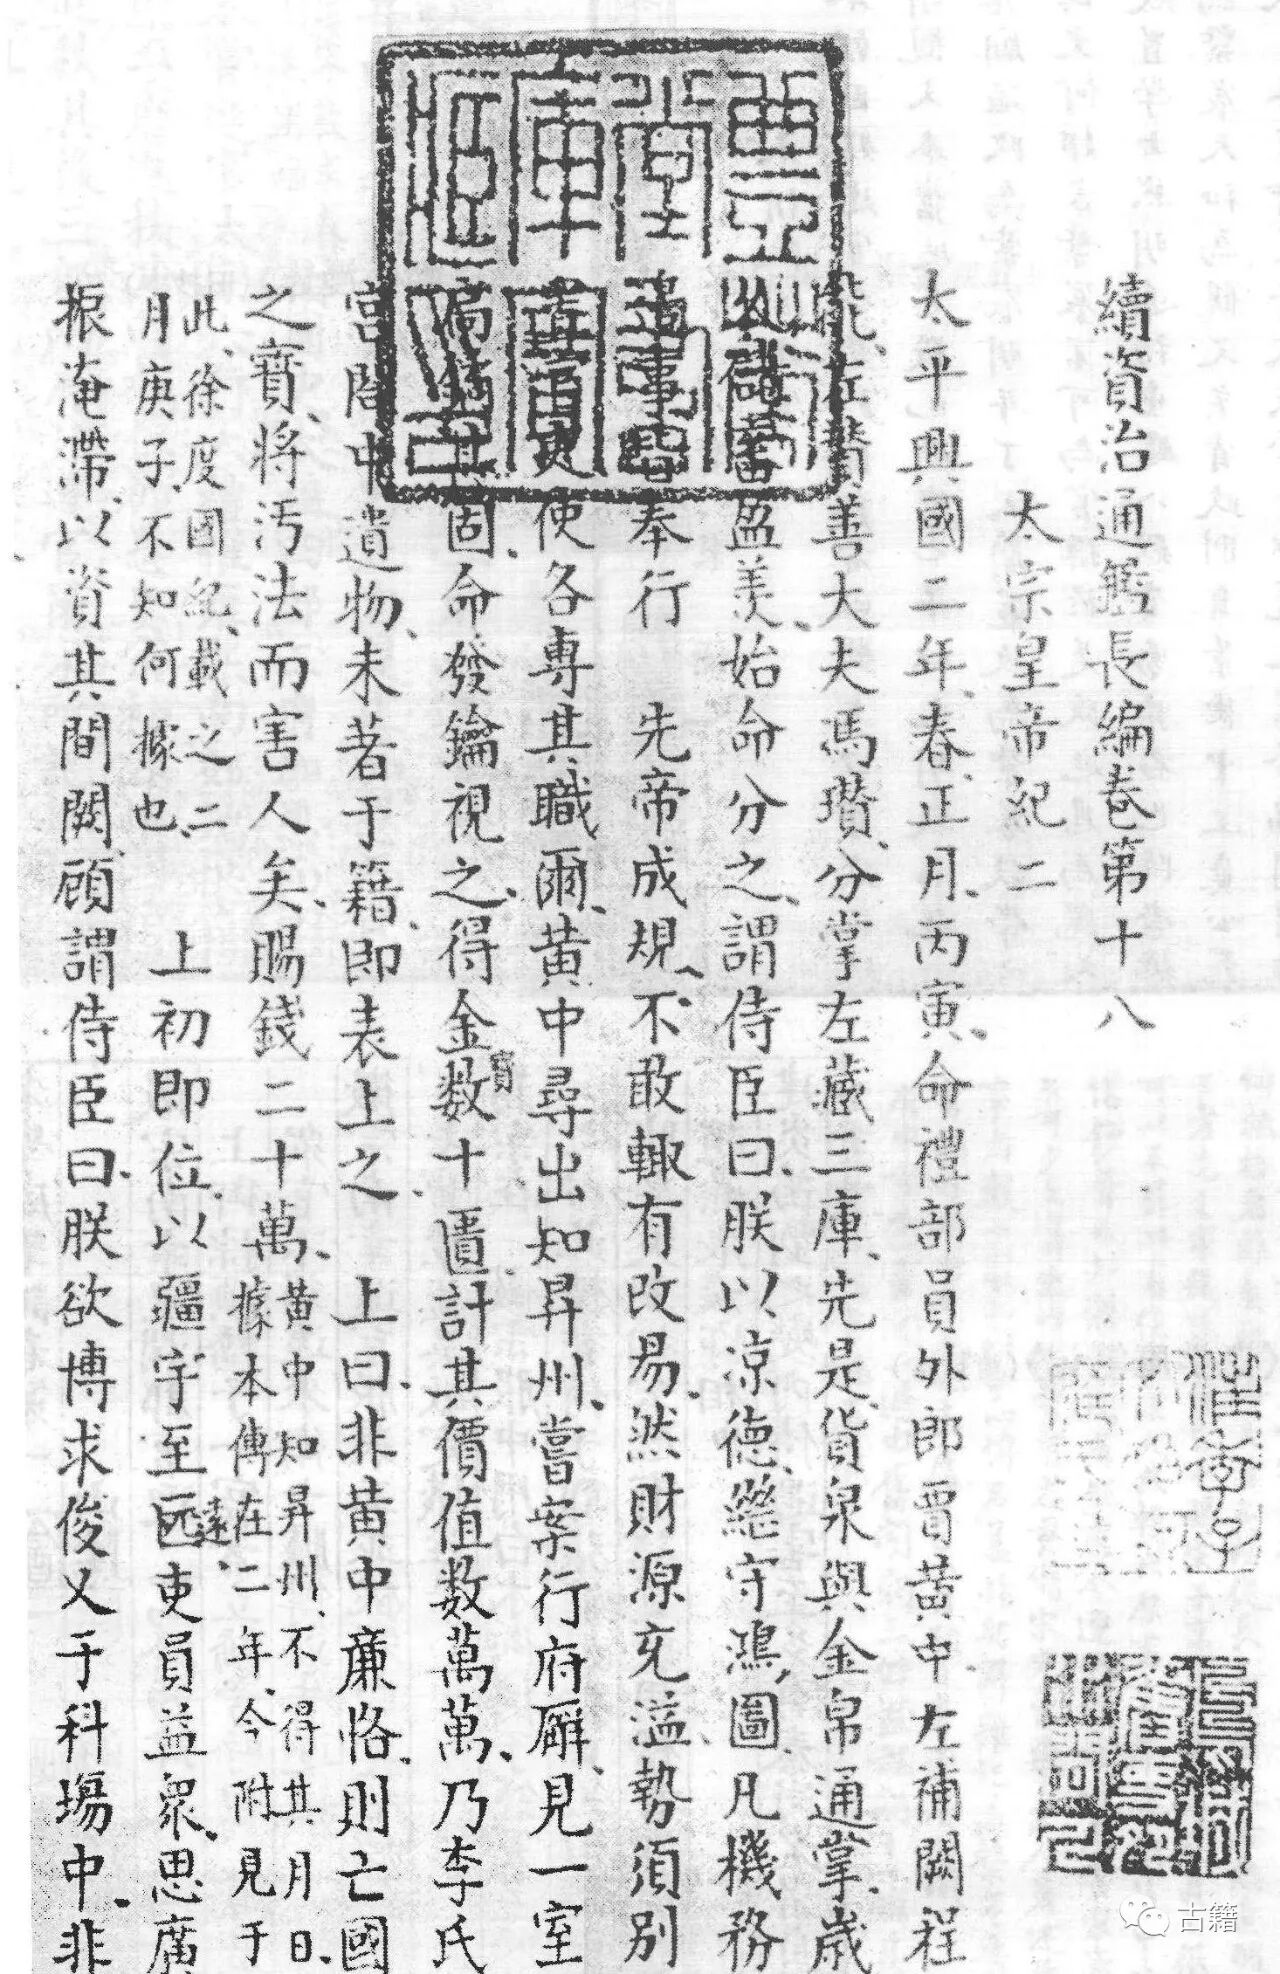 續資治通鑑長編卷第十八
太宗皇帝紀二
太平興國二年春正月丙寅命禮部員外郎賈黃中左補闕程
能左贊善大夫馮瓚分掌左藏三庫先是貨泉與金帛通掌歲
久儲蓄盈羨始命分之謂侍臣曰朕以涼德繼守鴻圖凡機務
邊事皆奉行 先帝成規不敢輒有改易然財源充溢勢須別
置官吏使各專其職爾黃中尋出知昇州嘗案行府廨見一室
扃鑰甚固命發鑰視之得金寶数十匱計其價值数萬萬乃李氏
宮閤中遺物未著于籍即表上之 上曰非黃中廉恪則亡國
之寶將汚法而害人矣賜錢二十萬
黃中知昇州不得其月日
據本傳在二年今附見于
此徐度國紀載之二
月庚子不知何據也
上初即位以疆宇至遠吏員益衆思廣
振淹滯以資其間闕顧謂侍臣曰朕欲博求俊乂于科場中非
古籍